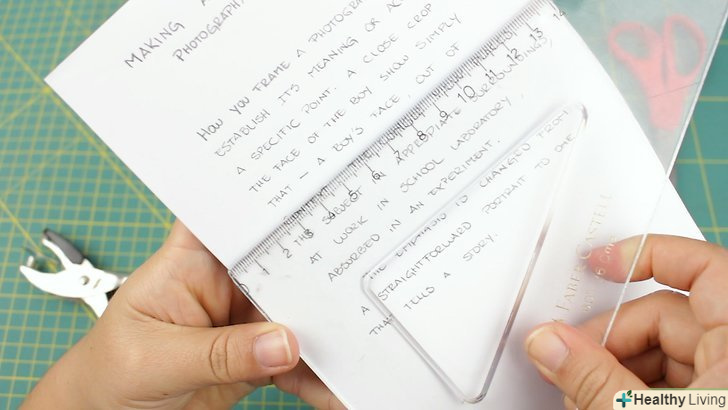 MAKING A
PHOTOGRAPH
HOW YOU FRAME A PHOTOGRA
ESTABLISH IT'S MEANING OR AC
A SPECIFIC POINT. A CLOSE CROP
THE FACE OF THE BOY SHOW SIMPLY
THAT — A BOY'S FACE, OUT OF
THE SUBJECT IN APPROPRIATE SURROUNDINGS,
AT WORK IN SCHOOL LABORATORY,
ABSORBED IN AN EXPERIMENT.
THE EMPHASIS IS CHANGED FROM
A STRAIGHTFORWARD PORTRAIT TO ONE
THAT TELLS A STORY.
0 1 2 3 4 5 6 7 8 9 10 11 12 13 14
FABER CASTELL
Healthy Living